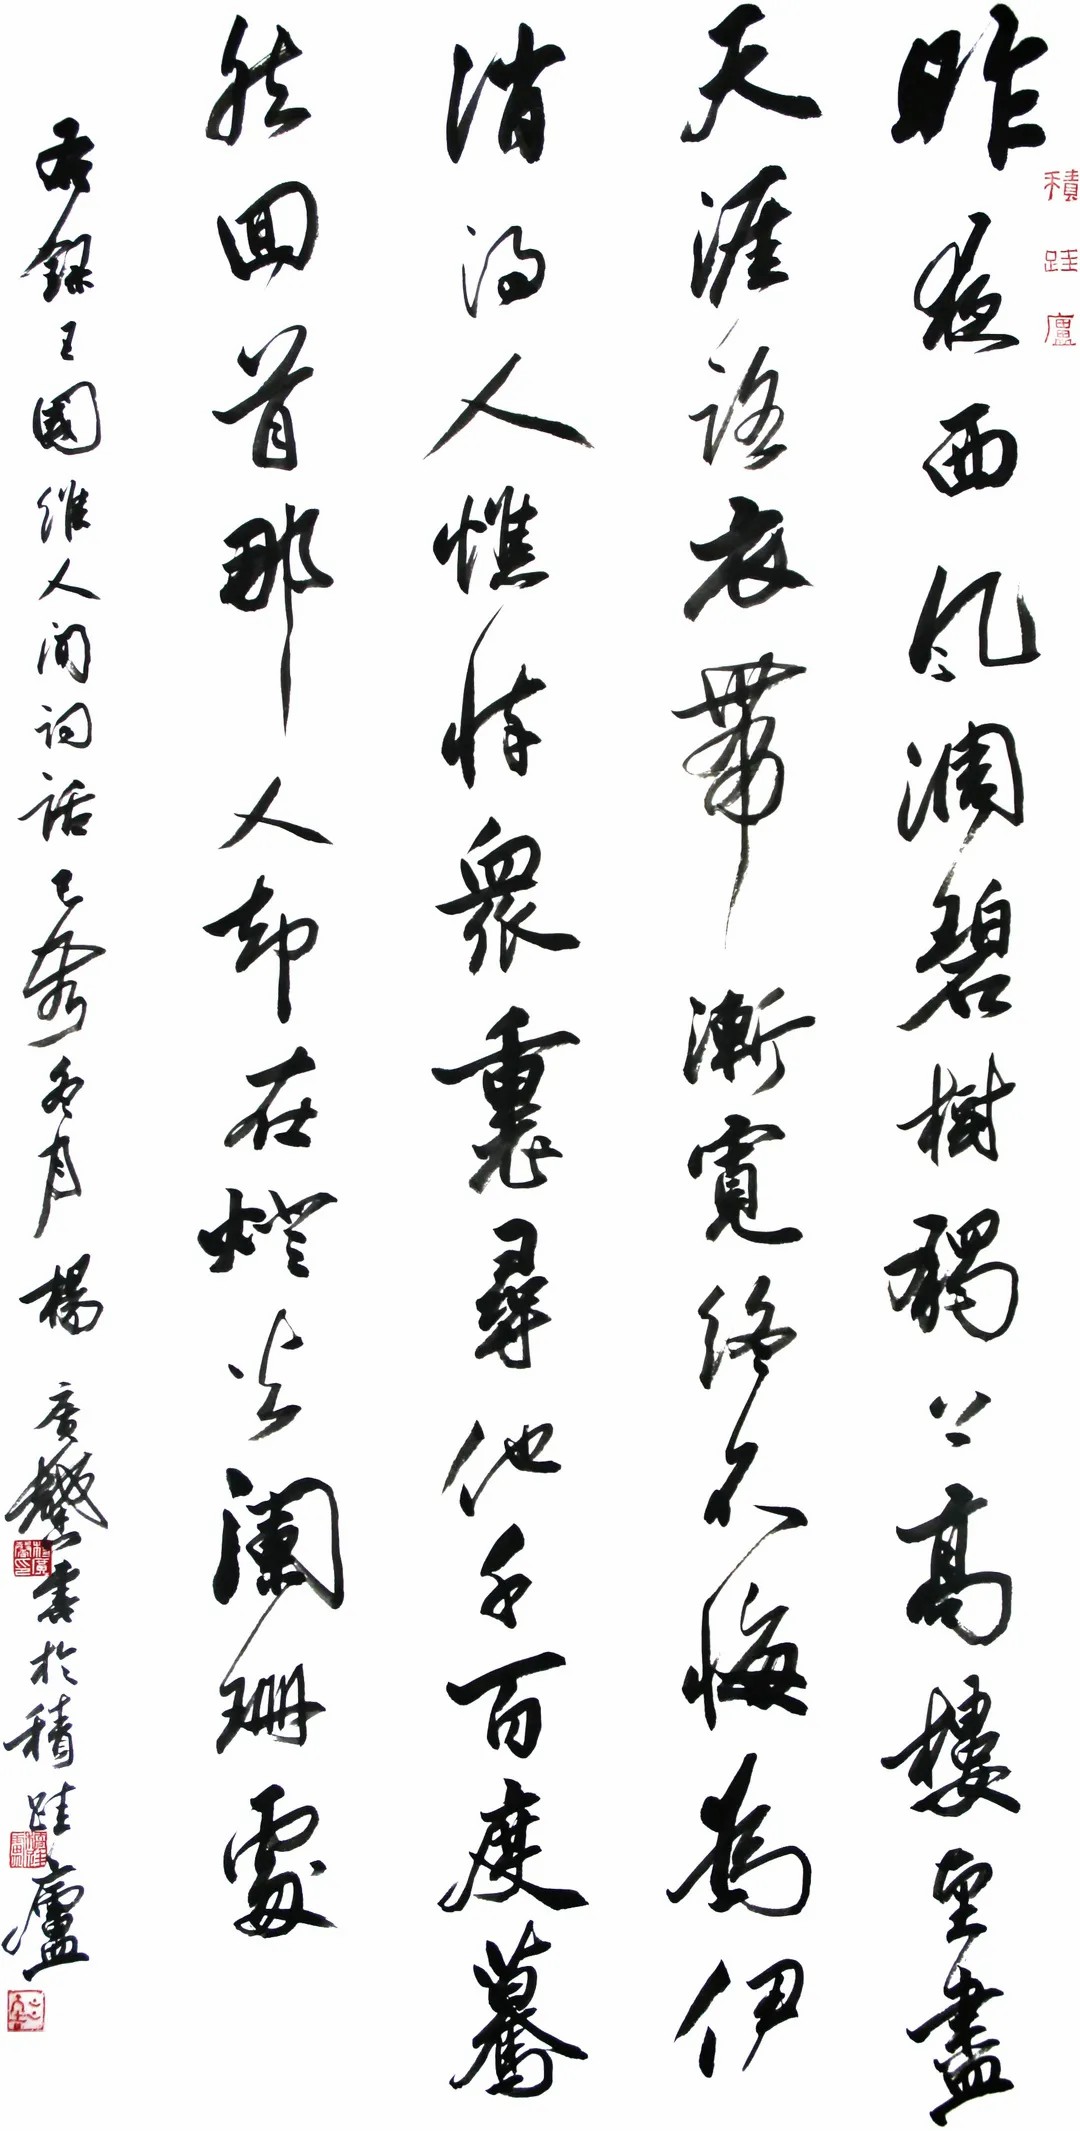 積跬廬
昨夜西風凋碧樹獨上高樓望盡
天涯路衣帶漸寬終不悔為伊
消得人憔悴衆裏尋他千百度驀
然回首那人却在燈火闌珊處
右錄王國維人間詞話己亥冬月楊廣馨書於積跬廬